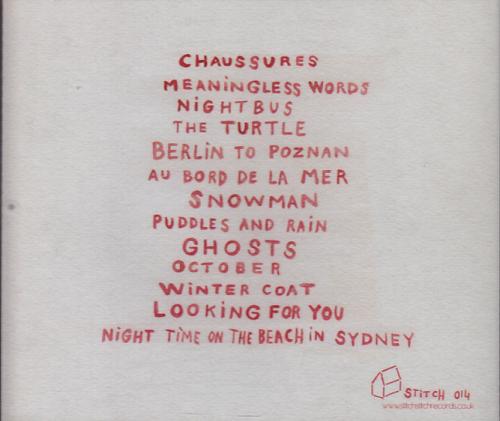 CHAUSSURES
MEANiNGLESS WORDS
NiGHTBUS
THE TURTLE
BERLiN TO POZNAN
AU BORD DE LA MER
SNOWMAN
PUDDLES AND RAiN
GHOSTS
OCTOBER
WiNTER COAT
LOOKiNG FOR YOU
NiGHT TiME ON THE BEACH iN SYDNEY
STiTCH 014
www.stitchstitchrecords.co.uk